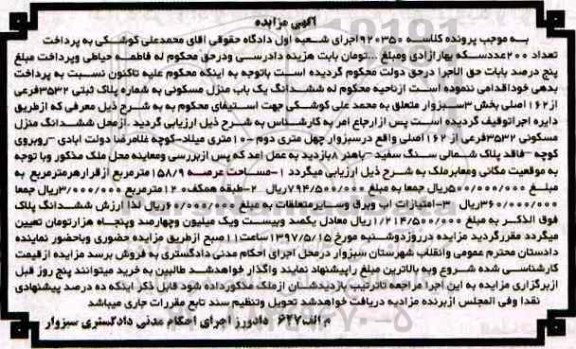 آگهی مزایده
به موجب پرونده کلاسه ۹۲۰۳۵۰اجرای شعبه اول دادگاه حقوقی آقای محمدعلی کوشکی به پرداخت
تعداد ۲۰۰عددسکه بهارآزادی ومبلغ ...تومان بابت هزینه دادرسی ودرحق محکوم له فاطمه حیاطی وپرداخت مبلغ
پنج درصد بابت حق الاجرا درحق دولت محکوم گردیده است باتوجه به اینکه محکوم علیه تاکنون نسبت به پرداخت
بدهی خوداقدامی ننموده است ازناحیه محکوم له ششدانگ یک باب منزل مسکونی به شماره پلاک ثبتی ۳۵۳۲فرعی
از۱۶۲اصلی بخش ۳سبزوار متعلق به محمد علی کوشکی جهت استیفای محکوم به به شرح ذیل معرفی که ازطریق
دایره اجراتوقیف گردیده است پس ازارجاع امر به کارشناس به شرح ذیل ارزیابی گردید .ازمحل ششدانگ منزل
مسکونی ۳۵۳۲فرعی از ۱۶۲اصلی واقع درسبزوار چهل متری دوم -۱۰متری میلاد-کوچه غلامرضا دولت آبادی -روبروی
کوچه -فاقد پلاک شمالی سنگ سفید -باهنر ۸بازدید به عمل آمد که پس ازبررسی ومعاینه محل ملک مذکور وبا توجه
به موقعیت مکانی ومعابرملک به شرح ذیل ارزیابی میگردد ۱-مساحت عرصه ۱۵۸/۹مترمربع ازقرارهرمترمربع به
مبلغ ۵/۰۰۰/۰۰۰ریال جمعا به مبلغ ۷۹۴/۵۰۰/۰۰۰ریال ۲-طبقه همکف ۱۲۰مترمربع ۳/۰۰۰/۰۰۰ریال جمعا
۳۶۰/۰۰۰/۰۰۰ریال ۳-امتیازات آب وبرق وسایرمتعلقات به مبلغ ۶۰/۰۰۰/۰۰۰ریال لذا ارزش ششدانگ پلاک
فوق الذکر به مبلغ ۱/۲۱۴/۵۰۰/۰۰۰ریال معادل یکصد وبیست ویک میلیون وچهارصد وپنجاه هزارتومان تعیین
میگردد مقررگردید مزایده درروزدوشنبه مورخ ۱۳۹۷/۵/۱۵ ساعت۱۱صبح ازطریق مزایده حضوری وباحضور نماینده
دادستان محترم عمومی وانقلاب شهرستان سبزوار درمحل اجرای احکام مدنی دادگستری به فروش برسد مزایده ازقیمت
کارشناسی شده شروع وبه بالاترین مبلغ راپیشنهاد نمایند واگذار خواهدشد طالبین به خرید میتوانند پنج روز قبل
ازبرگزاری مزایده به این اجرا مراجعه تاترتیب بازدیدشان ازملک مذکورداده شود قابل ذکر اینکه ده درصد پیشنهادی
نقدا وفی المجلس ازبرنده مزایده دریافت خواهدشد تحویل وتنظیم سند تابع مقررات جاری میباشد
م الف۶۲۷ دادورز اجرای احکام مدنی دادگستری سبزوار